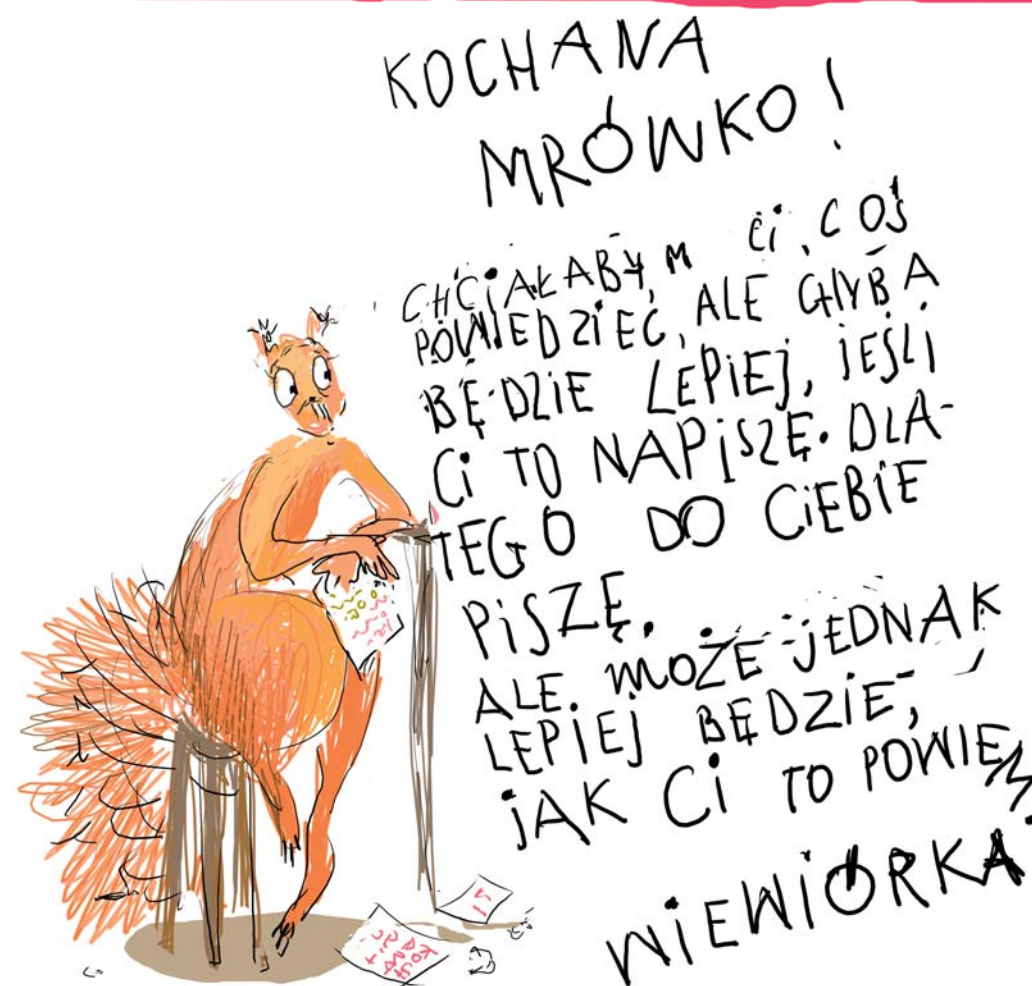 KOCHANA
MRÓWKO!
CHCIAŁABYM CI COŚ
POWIEDZIEĆ, ALE CHYBA
BĘDZIE LEPIEJ, JEŚLI
CI TO NAPISZĘ. DLA-
TEGO DO CIEBIE
PISZĘ.
ALE MOŻE JEDNAK
LEPIEJ BĘDZIE,
JAK CI TO POWIEM.
WIEWIÓRKA